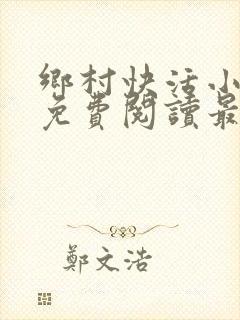 鄉村快活小
免費閱讀最
鄭文浩